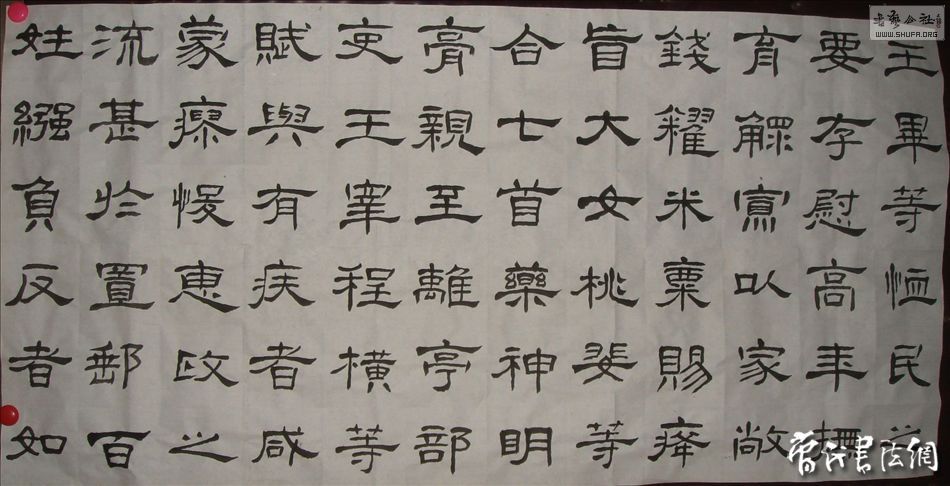 王畢等恤民之
要存慰高年撫
育鰥寡以家敞
錢糴米粟賜癃
盲大女桃婓等
合七首藥神明
膏親至離亭部
吏王宰程橫等
賦與有疾者咸
蒙瘳悛惠政之
流甚於置郵百
姓繦負反者如
书艺公社
WWW.SHUFA.ORG
書法網